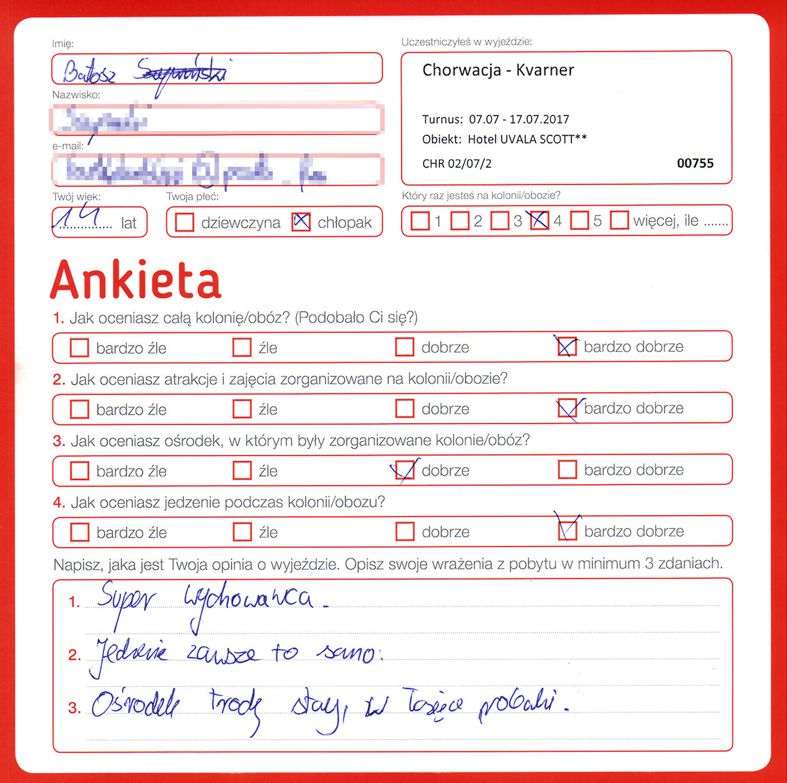 Imię:
Batosz
Uczestniczyłeś w wyjeździe:
Chorwacja - Kvarner
Turnus: 07.07 - 17.07.2017
Obiekt: Hotel UVALA SCOTT**
CHR 02/07/2 00755
Nazwisko:
e-mail:
Twój wiek:
14 lat
Twoja płeć:
dziewczyna chłopak
Który raz jesteś na kolonii/obozie?
1 2 3 4 5 więcej, ile .......
Ankieta
1. Jak oceniasz całą kolonię/obóz? (Podobało Ci się?)
bardzo źle źle dobrze bardzo dobrze
2. Jak oceniasz atrakcje i zajęcia zorganizowane na kolonii/obozie?
bardzo źle źle dobrze bardzo dobrze
3. Jak oceniasz ośrodek, w którym były zorganizowane kolonie/obóz?
bardzo źle źle dobrze bardzo dobrze
4. Jak oceniasz jedzenie podczas kolonii/obozu?
bardzo źle źle dobrze bardzo dobrze
Napisz, jaka jest Twoja opinia o wyjeździe. Opisz swoje wrażenia z pobytu w minimum 3 zdaniach.
1. Super wychowawca.
2. Jedzenie zawsze to samo.
3. Ośrodek trodę stay, w robaki.